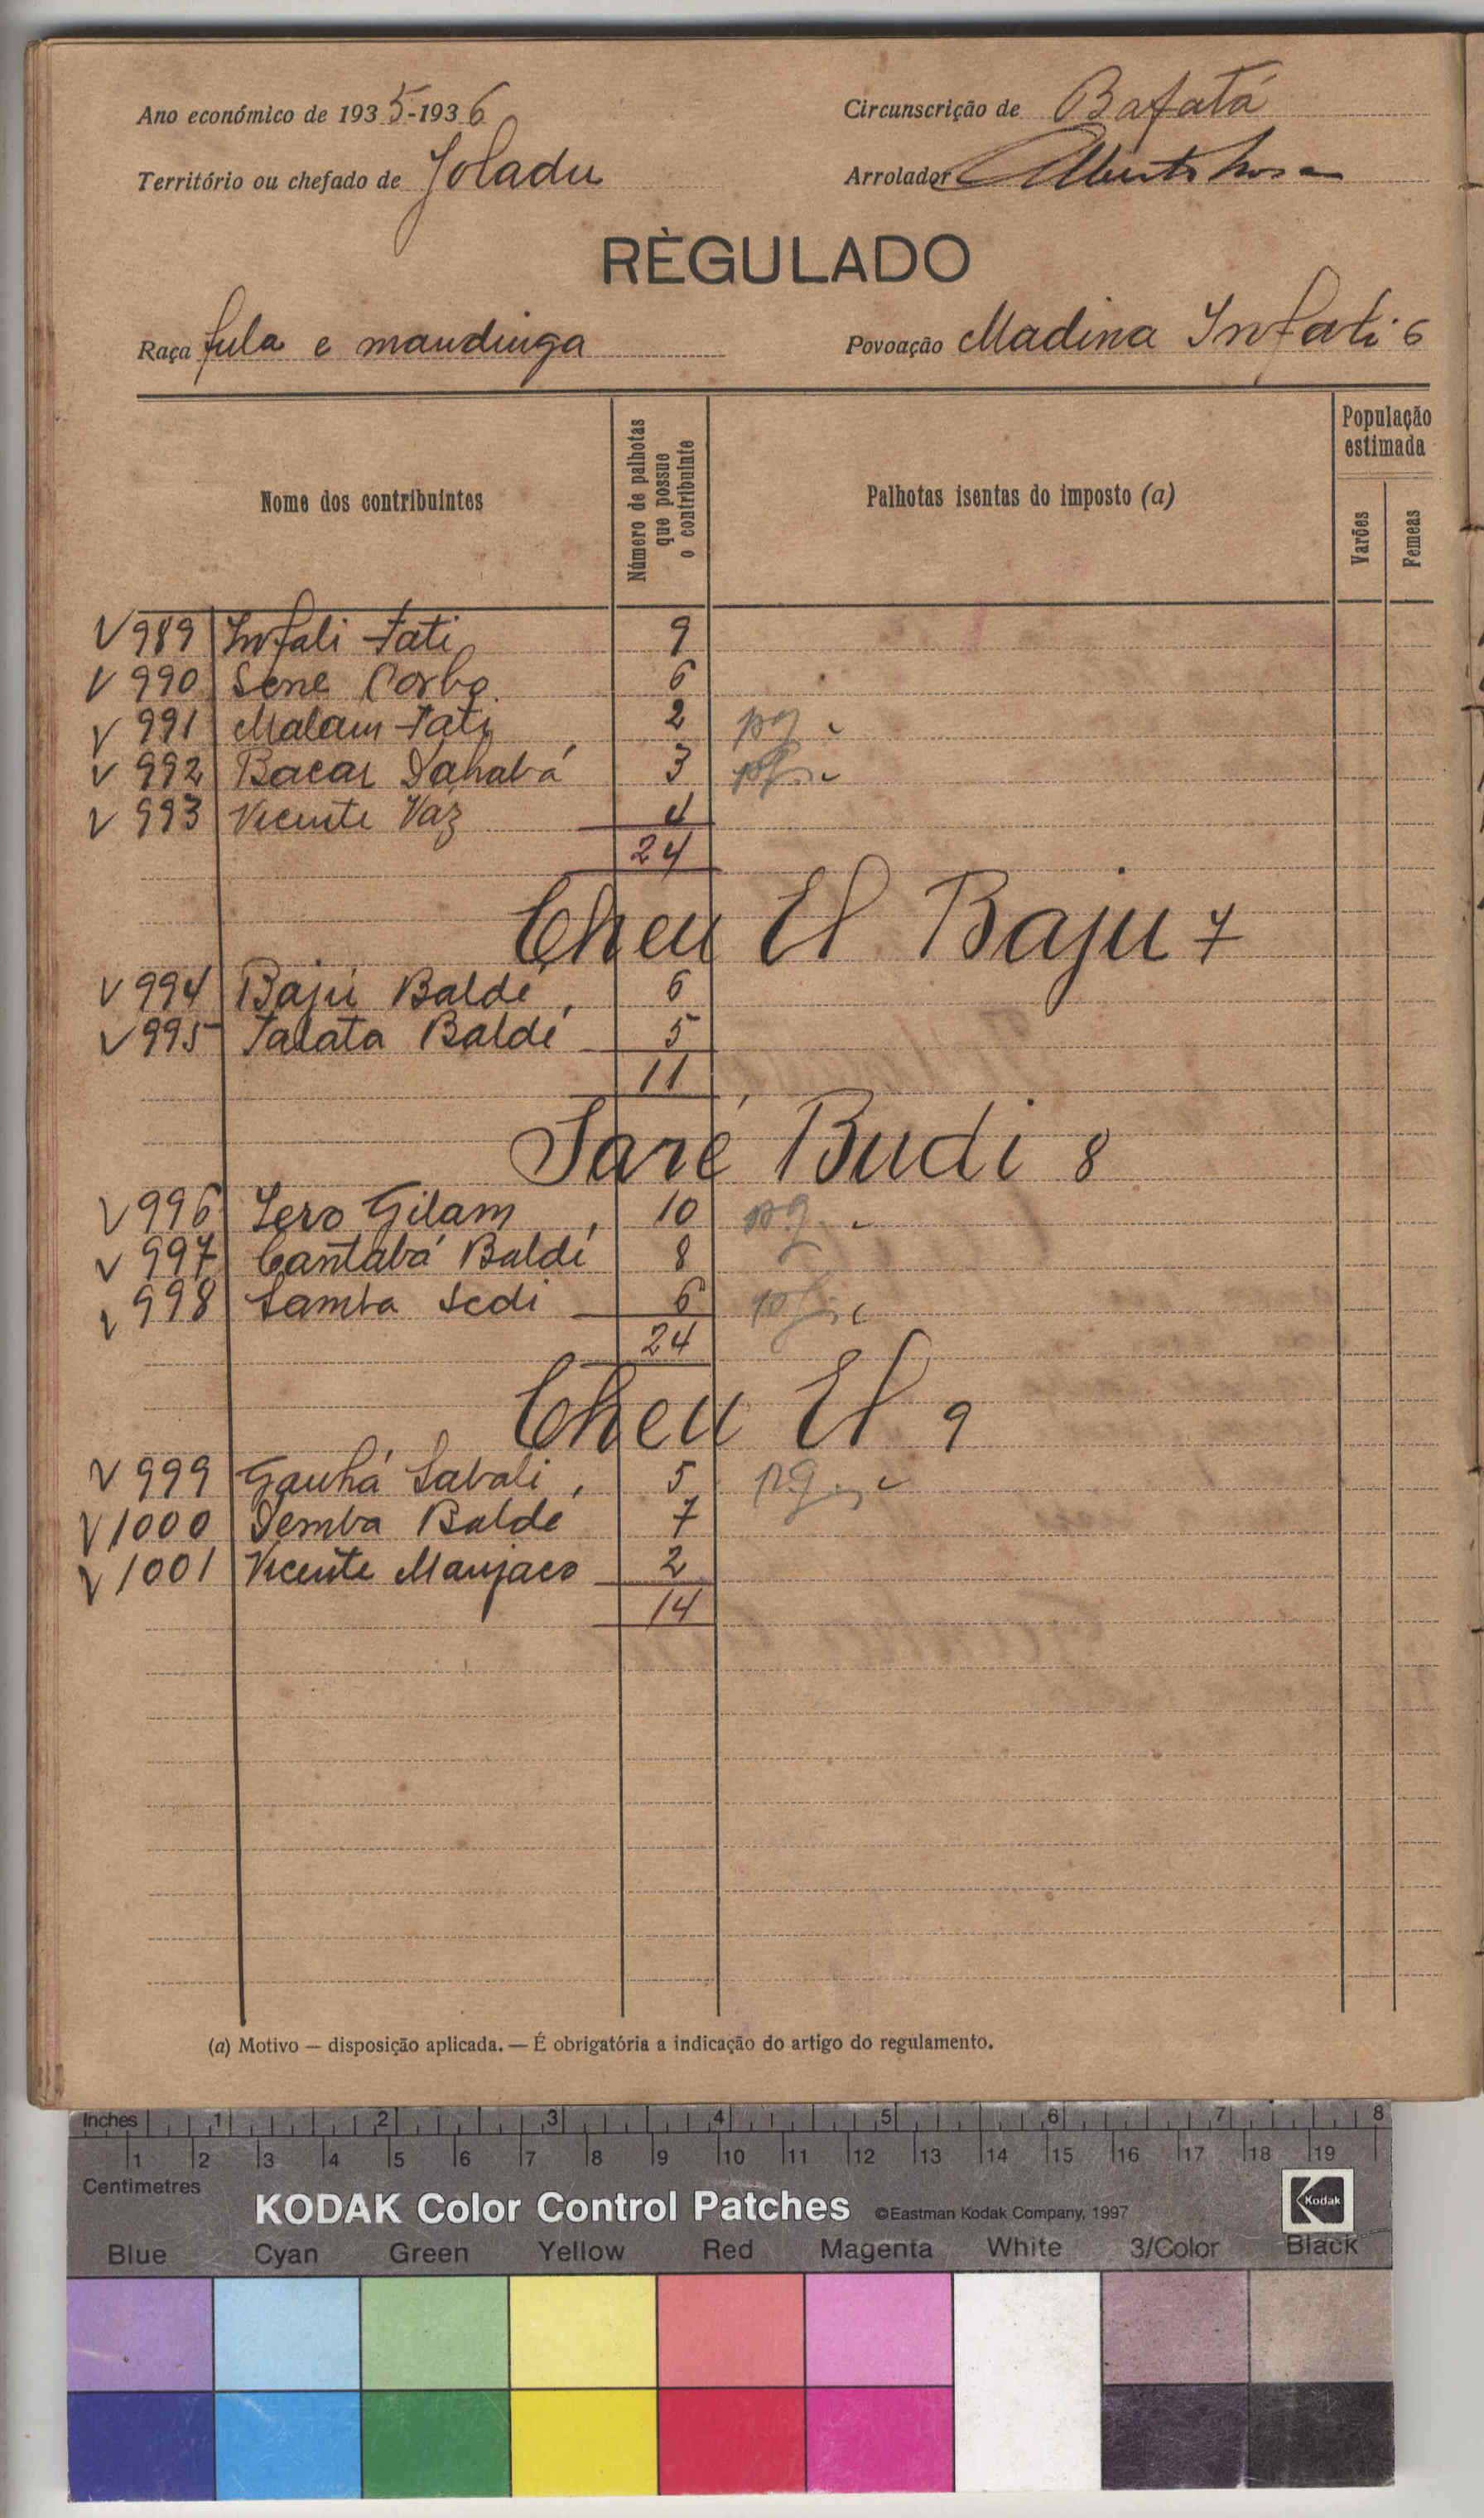 Ano económico de 1935-1936
Circunscrição de Bafatá
Território ou chefado de Joladu
Arrolador Alberto
RÈGULADO
Raça fula e mandinga
Povoação Madina Infali 6
Nome dos contribuintes
Número de palhotas que possue o contribuinte
Palhotas isentas do imposto (a)
População estimada
Varões
Femeas
V 989 Infali Fati 9
V 990 Sene Corbo 6
V 991 Malam Fati 2 pg
V 992 Bacar Dahabá 3
V 993 Vicente Vaz 4
24
Cheu El Baju 7
V 994 Bajú Baldé 6
V 995 Talata Baldé 5
11
Saré Budi 8
V 996 Iero Gilam 10 pg
V 997 Cantabá Baldé 8
V 998 Samba Sedi 6
24
Cheu El 9
V 999 Gauhá Sabali 5 pg
V 1000 Demba Baldé 7
V 1001 Vicente Manjaco 2
14
(a) Motivo — disposição aplicada. — É obrigatória a indicação do artigo do regulamento.
Inches 1 2 3 4 5 6 7 8
1 2 3 4 5 6 7 8 9 10 11 12 13 14 15 16 17 18 19
Centimetres
KODAK Color Control Patches ©Eastman Kodak Company, 1997 Kodak
Blue Cyan Green Yellow Red Magenta White 3/Color Black